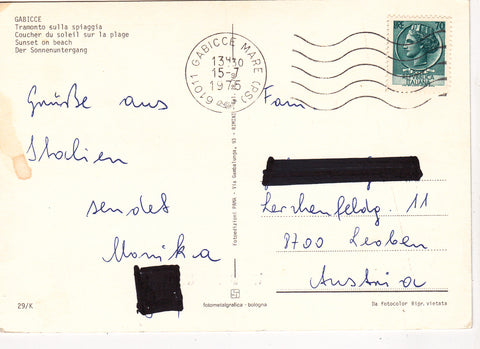 GABICCE
Tramonto sulla spiaggia
Coucher du soleil sur la plage
Sunset on beach
Der Sonnenuntergang
61011 GABICCE MARE (PS)
15-7
1975
Grüße aus
Italien
sendet
Monika
Fam
Lerchenfeldg. 11
8700 Leoben
Austria
29/K
fotometalgrafica - bologna
Da Fotocolor Ripr. vietata